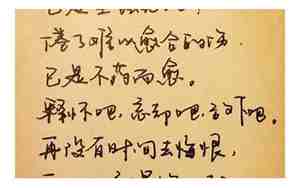 已是
倦了难以愈合的伤
已是不药而愈。
释怀吧,忘却吧,放下吧。
再没有时间去悔恨,